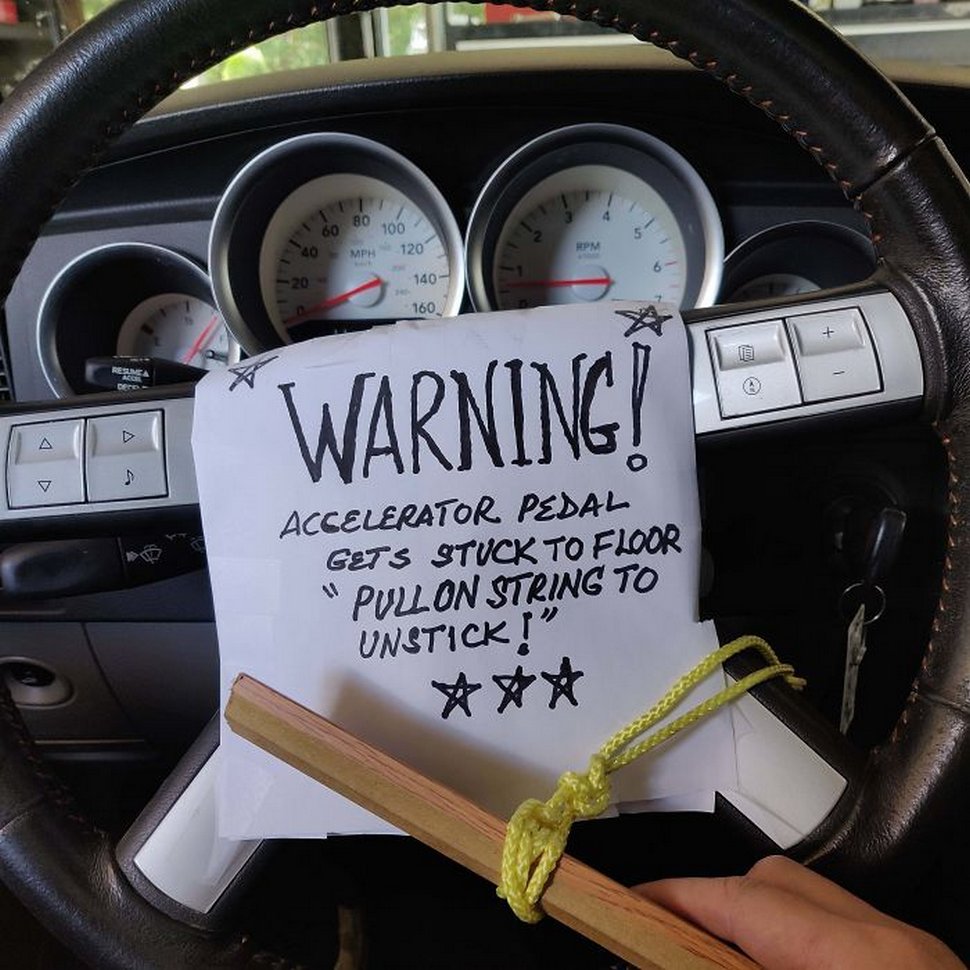 20
40
60
80
100
120
140
160
MPH
km/h
1
2
3
4
5
6
7
RPM
x1000
RESUME▲
ACCEL
WARNING!
ACCELERATOR PEDAL
GETS STUCK TO FLOOR
" PULL ON STRING TO
UNSTICK!"